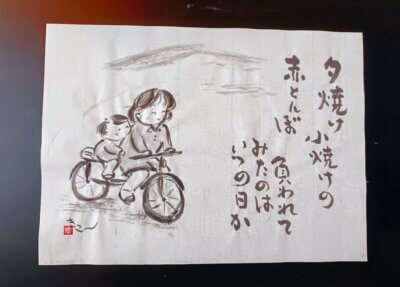 夕焼け小焼けの
赤とんぼ
負われて
みたのは
いつの日か